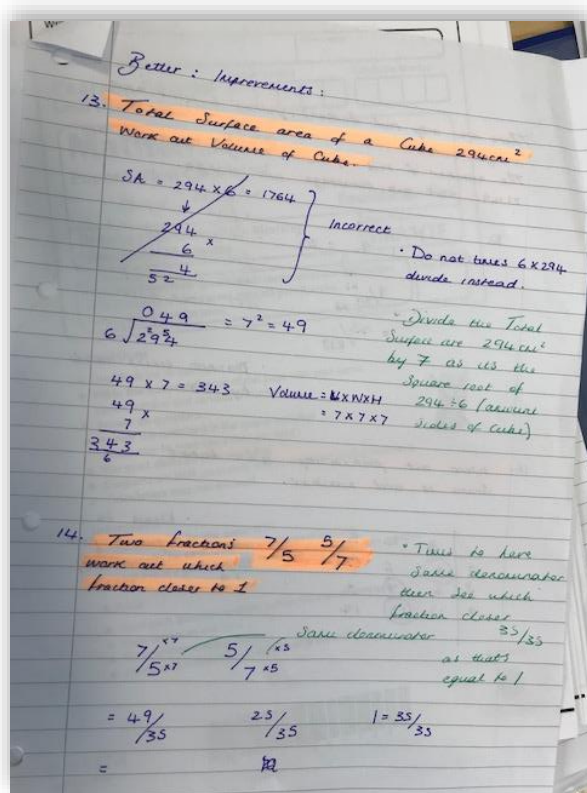 Better : Improvements :
13. Total Surface area of a Cube 294cm²
Work out Volume of Cube.
SA = 294 x 6 = 1764
294
6 x
4
52
Incorrect
· Do not times 6 x 294
divide instead.
049
6 √294 = 7² = 49
· Divide the Total
Surface are 294cm²
by 7 as its the
Square root of
294 ÷ 6 (amount
sides of Cube)
49 x 7 = 343
49 x
7
343
6
Volume = LxWxH
= 7x7x7
14. Two fractions 7/5 5/7
work out which
fraction closer to 1
· Times to have
Same denominator
then see which
fraction closer
35/35
as that's
equal to 1
7/5 x7 x7 5/7 x5 x5 Same denominator
= 49/35 25/35 1 = 35/35
=